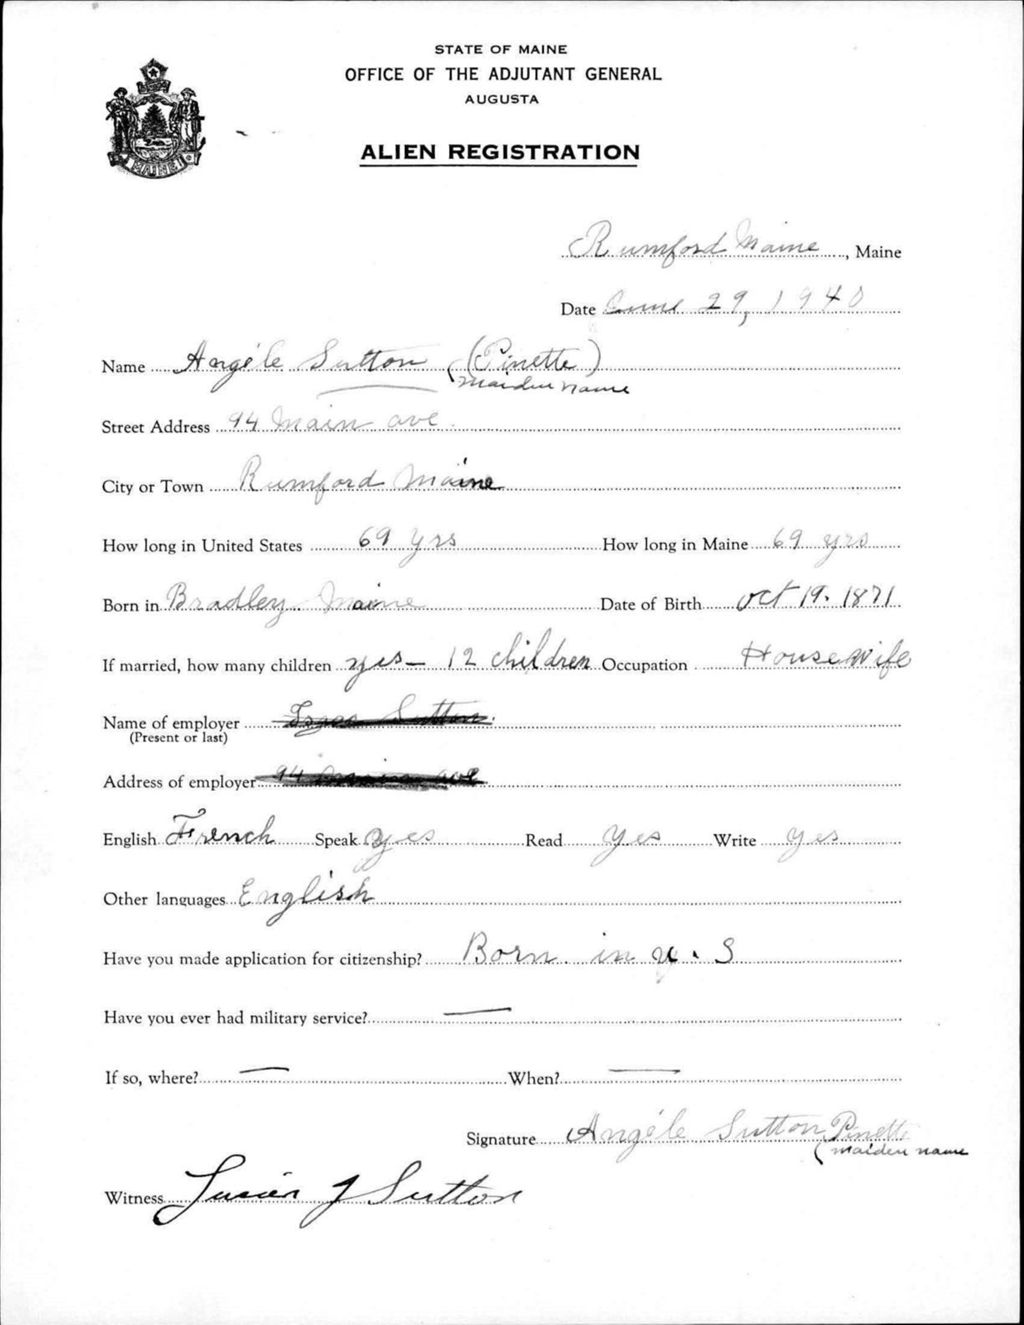 STATE OF MAINE
OFFICE OF THE ADJUTANT GENERAL
AUGUSTA
ALIEN REGISTRATION
MAINE
Rumford Maine, Maine
Date June 29, 1940
Name Angéle Sutton (Pinette)
(maiden name
Street Address 94 Main ave.
City or Town Rumford Maine
How long in United States 69 yrs How long in Maine 69 yrs
Born in Bradley Maine Date of Birth Oct 19. 1871
If married, how many children yes – 12 children Occupation House Wife
Name of employer Sutton.
(Present or last)
Address of employer 94 ave
English French Speak yes Read yes Write yes
Other languages English
Have you made application for citizenship? Born in U. S
Have you ever had military service? —
If so, where? — When? —
Signature Angéle Sutton Pinette
(maiden name
Witness Lucien J Sutton